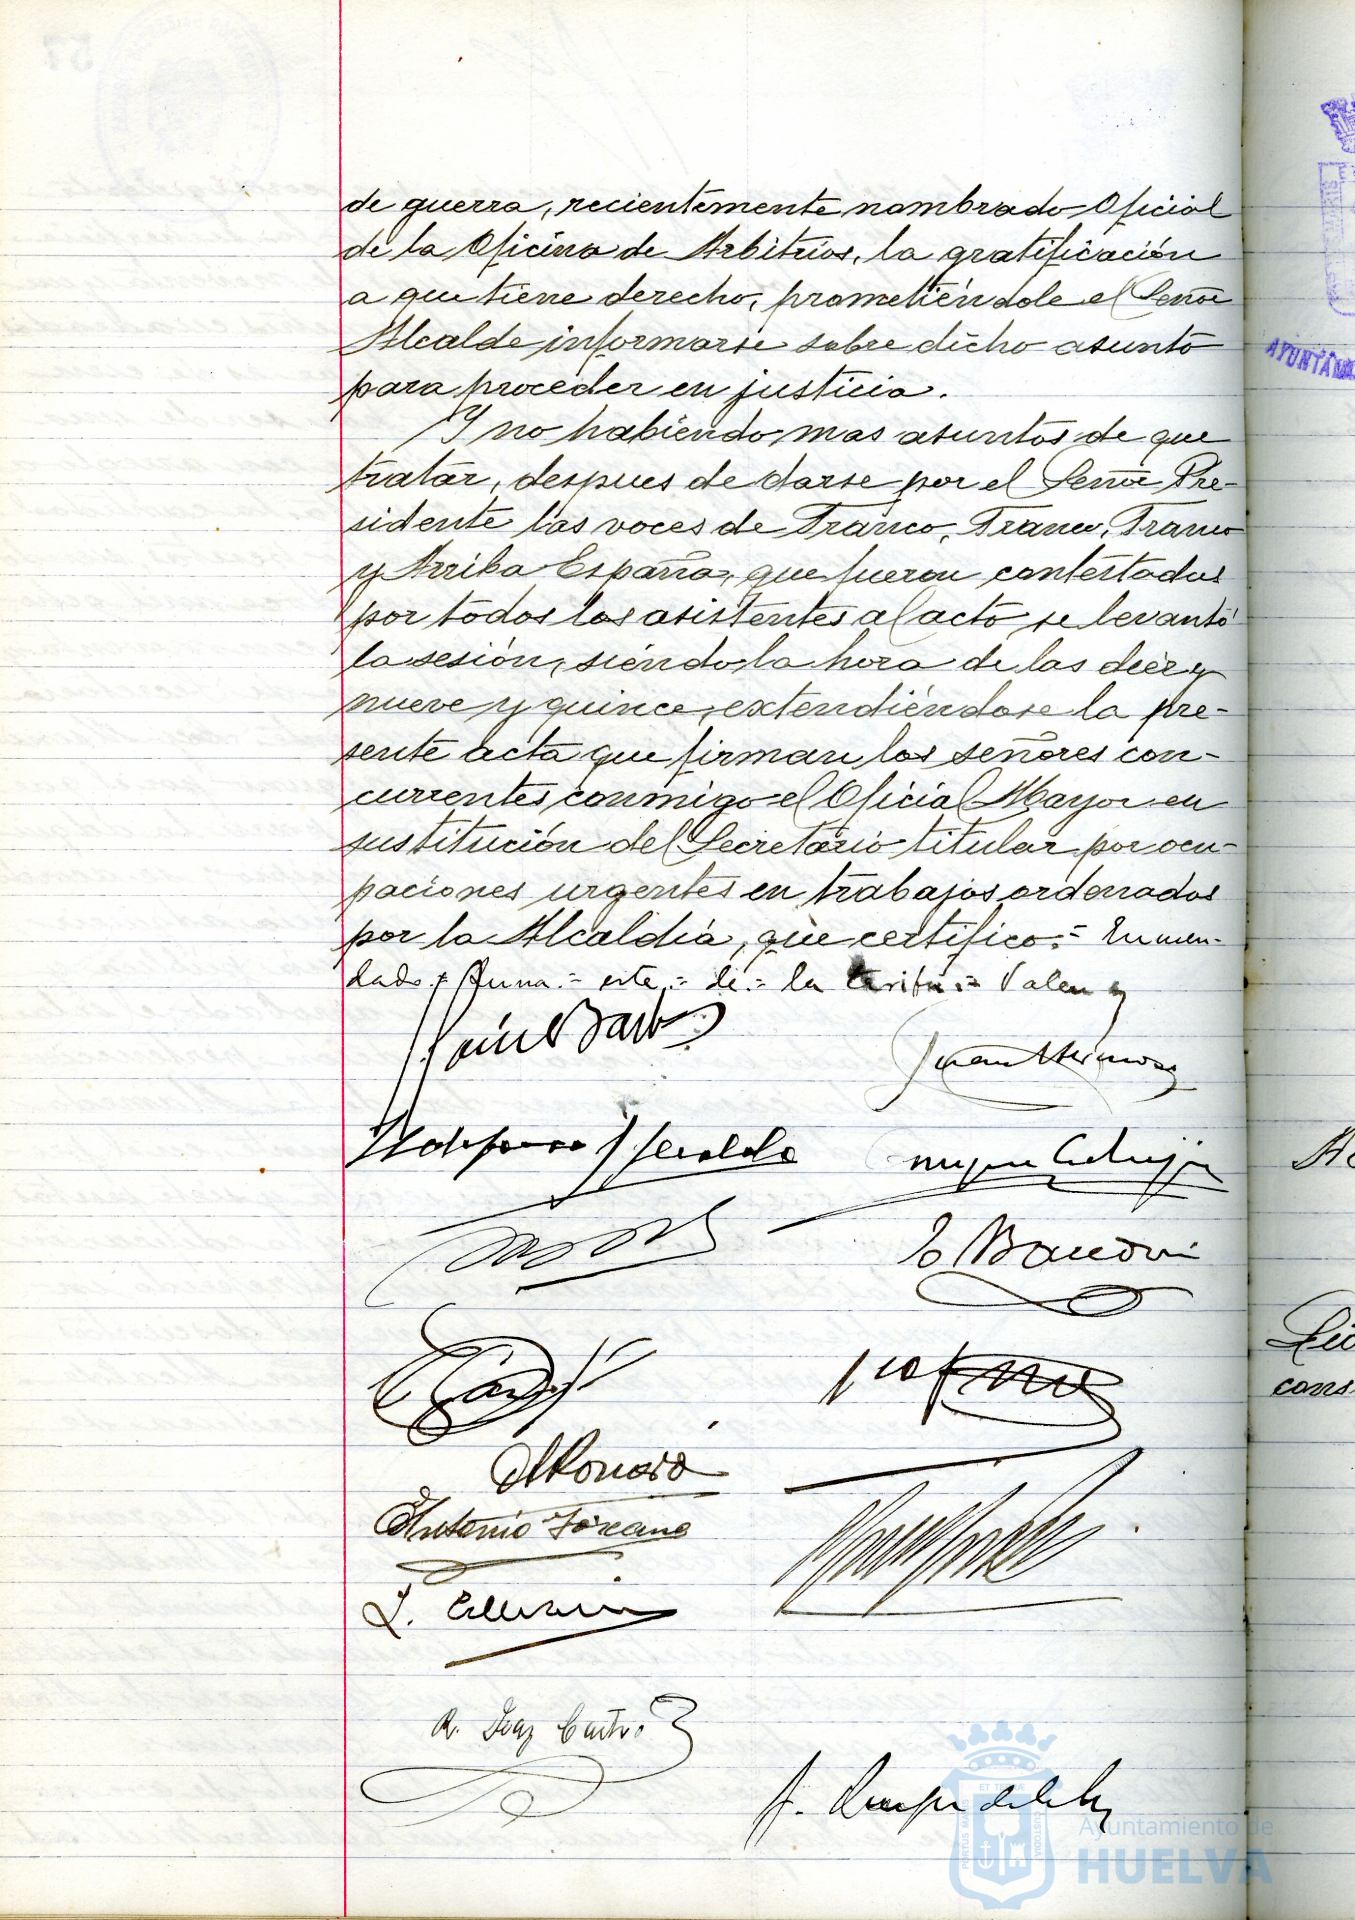 de guerra, recientemente nombrado Oficial
de la Oficina de Arbitrios, la gratificación
a que tiene derecho, prometiéndole el Señor
Alcalde informarse sobre dicho asunto
para proceder en justicia.
Y no habiendo mas asuntos de que
tratar, despues de darse por el Señor Pre-
sidente las voces de Franco, Franco, Franco
y Arriba España, que fueron contestadas
por todos los asistentes al acto se levantó
la sesión, siendo la hora de las diez y
nueve y quince, extendiéndose la pre-
sente acta que firman los señores con-
currentes conmigo el Oficial Mayor en
sustitución del Secretario titular por ocu-
paciones urgentes en trabajos ordenados
por la Alcaldía, que certifico.= Enmen-
dado = = este = de = la tarifa = Valen
Antonio Toscano
R. Diaz Castro
AYUNTAM
cons
PORTUS MARIS ET TERRE CUSTODIA
Ayuntamiento de
HUELVA